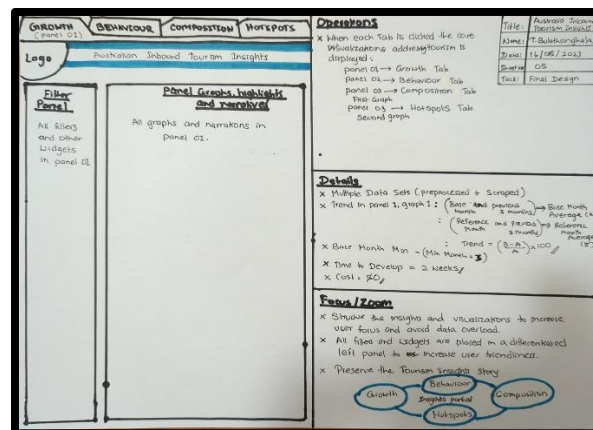 GROWTH
(panel 01)
BEHAVIOUR
COMPOSITION
HOTSPOTS
Logo
Australian Inbound Tourism Insights
Filter
Panel
All filters
and other
Widgets
in panel 01
Panel Graphs, highlights
and narratives
All graphs and narrations in
Panel 01.
Operations
x When each Tab is clicked the core
visualizations addressing tourism is
displayed:
panel 01 → Growth Tab
Panel 02 → Behaviour Tab
panel 03 → Composition Tab
First Graph
panel 03 → Hotspots Tab
Second graph
Title: Australia Inbound
Tourism Insights
Name:
Date: 16/08/2023
Sheet: 05
Task: Final Design
Details
x Multiple Data Sets (preprocessed + Scraped)
x Trend in panel 1, graph 1: (Base Month and previous 3 months) → Base Month Average (A)
: (Reference Month and previous 3 months) → Reference Month Average (B)
: Trend = (B-A/A) x 100
x Base Month Min = (Min Month + 3)
x Time to Develop = 2 weeks
x Cost = $0
Focus/Zoom
x Structure the insights and visualizations to increase
user focus and avoid data overload.
x All filters and widgets are placed in a differentiated
left panel to increase user friendliness.
x Preserve the Tourism Insights story
Behaviour
Growth
Insights portal
Composition
Hotspots